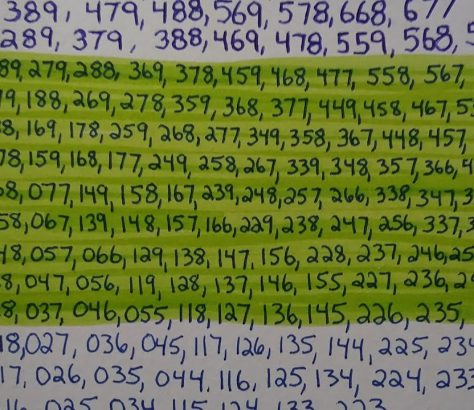 389, 479, 488, 569, 578, 668, 677
289, 379, 388, 469, 478, 559, 568, 5
89, 279, 288, 369, 378, 459, 468, 477, 558, 567,
9, 188, 269, 278, 359, 368, 377, 449, 458, 467, 5
8, 169, 178, 259, 268, 277, 349, 358, 367, 448, 457,
78, 159, 168, 177, 249, 258, 267, 339, 348, 357, 366, 4
8, 077, 149, 158, 167, 239, 248, 257, 266, 338, 347, 3
58, 067, 139, 148, 157, 166, 229, 238, 247, 256, 337, 3
48, 057, 066, 129, 138, 147, 156, 228, 237, 246, 25
8, 047, 056, 119, 128, 137, 146, 155, 227, 236, 2
8, 037, 046, 055, 118, 127, 136, 145, 226, 235,
18, 027, 036, 045, 117, 126, 135, 144, 225, 234
17, 026, 035, 044, 116, 125, 134, 224, 233
16, 025, 034, 115, 124, 133, 223